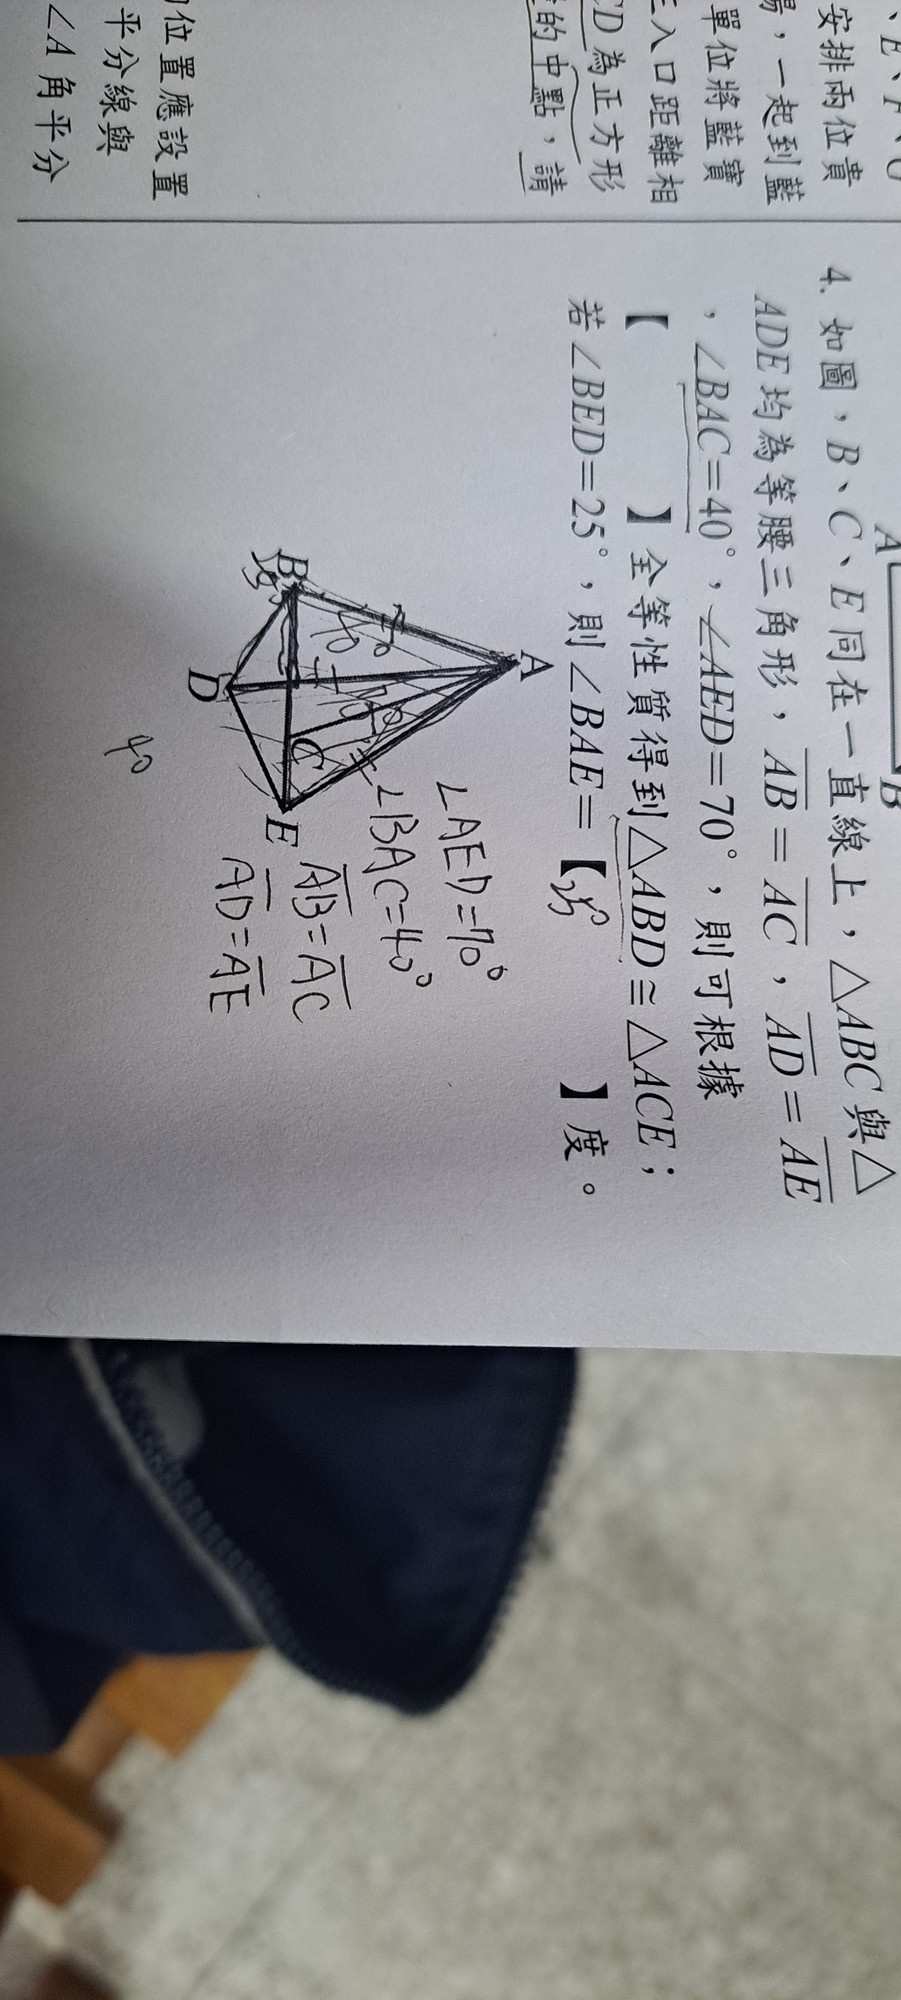 、E、F、G
安排兩位貴
場，一起到藍
單位將藍寶
三入口距離相
CD為正方形
的中點，請
位置應設置
平分線與
∠A角平分
A
B
4. 如圖，B、C、E同在一直線上，△ABC與△
ADE均為等腰三角形，AB=AC，AD=AE
，∠BAC=40°，∠AED=70°，則可根據
【 】全等性質得到△ABD≅△ACE；
若∠BED=25°，則∠BAE=【 】度。
A
B
C
D
E
∠AED=70°
∠BAC=40°
AB=AC
AD=AE
40